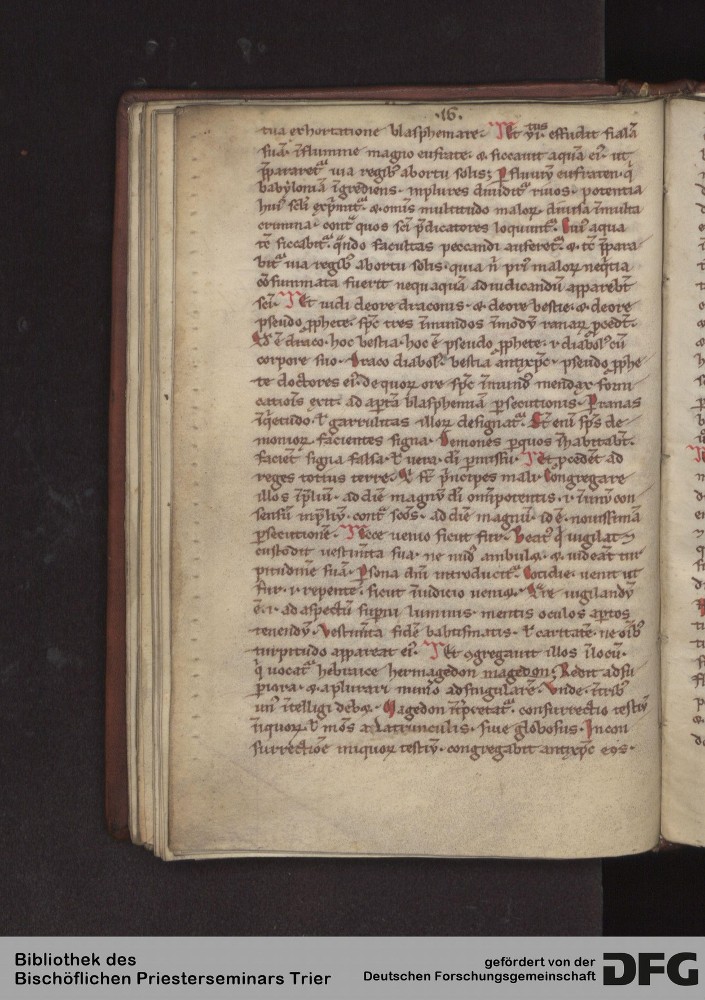 ·16·
tua exhortatione blasphemare. Et vi^tus effudit fialã
suã. ĩ flumine magno eufrate. & siccauit aquã ei᷒ ut
p̃pararet᷑ uia regib᷒ abortu solis; P fluuiũ eufraten. q̃
babyloniã ĩgrediens. inplures diuidit᷑ riuos. potentia
hui᷒ scl̃i exp̃mit᷑. & om̃is multitudo maloꝝ. diuisa ĩmulta
crimina. cont᷑ quos sc̃i p̃dicatores loquunt᷑. hui᷒ aqua
tẽ siccabit᷑. q̃ndo facultas peccandi auferet᷑. & tẽ p̃para
bit᷑ uia regib᷒ abortu solis. quia ñ pri᷒ maloꝝ neq̃tia
cõsummata fuerit nequaquã adiudicandũ apparebt̃
sc̃i. Et uidi deore draconis. & deore bestie. & deore
pseudo ꝓphete. sp̃c tres ĩmundos ĩmodũ ranaꝝ ꝓcedt̃.
ẽ draco. hoc bestia. hoc ẽ pseudo ꝓphete. ı diabol᷒ cũ
corpore suo. Draco diabol᷒. bestia antixp̃c. pseudo ꝓphe
te doctores ei᷒. de quoꝝ ore sp̃c ĩmund᷒ mendax forni
catiõis exit. ad apt̃ã blasphemiã ꝑsecutionis. P ranas
ĩq̃etudo. ł garrulitas illoꝝ designat᷑. St̃ eni sp̃s de
monioꝝ. facientes signa. Demones ꝑquos ĩhabitabt̃.
faciẽt signa falsa. ł uera. dĩ ꝑmissu. Et ꝓcedẽt ad
reges totius terre. st̃ p̃ncipes mali. Congregare
illos ĩp̃liũ. ad diẽ magnũ dĩ om̃ipotentis. ı ĩunũ con
sensũ inp̃liũ. cont᷑ sc̃os. ad diẽ magnũ. id ẽ. nouissimã
ꝑsecutionẽ. Ecce uenio sicut fur. beat᷒ q̃ uigilat ⁊
custodit uestim̃ta sua. ne nud᷒ ambulꝫ. & uideãt tur
pitudinẽ suã. Psona dñi introducit᷑. Cotidie uenit ut
fur. ı repentẽ. sicut ĩiudicio ueniꝫ. uigilandũ
ẽ. ı. ad aspectũ supni luminis. mentis oculos aptos
tenendũ. Vestim̃ta fidẽ babtismatis. ł caritatẽ. ne oĩb᷒
turpitudo appareat ei᷒. Et ꝯgregauit illos ĩ locũ.
q̃ uocat᷑ hebraice hermagedon magedon. Redit adsu
piora. & a plurari num̃o adsingularẽ. Vnde. ĩtrib᷒
un᷒ ĩtelligi debꝫ. Magedon ĩt̃pretat᷑. consurrectio testiũ
ĩiquoꝝ. ł mõs a Latrunculis. siue globosus. In con
surrectiõe iniquoꝝ testiũ. congregabit antixp̃c eos.
Bibliothek des
Bischöflichen Priesterseminars Trier
gefördert von der
Deutschen Forschungsgemeinschaft
DFG